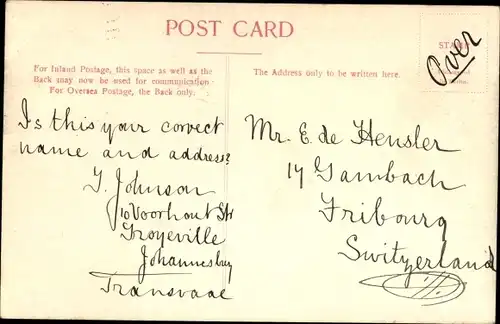 POST CARD
For Inland Postage, this space as well as the
Back may now be used for communication.
For Oversea Postage, the Back only.
The Address only to be written here.
STAMP
Over
Is this your correct
name and address?
J. Johnson
10 Voorhout Str
Troyeville
Johannesburg
Transvaal
Mr. E. de Hensler
14 Gambach
Fribourg
Switzerland